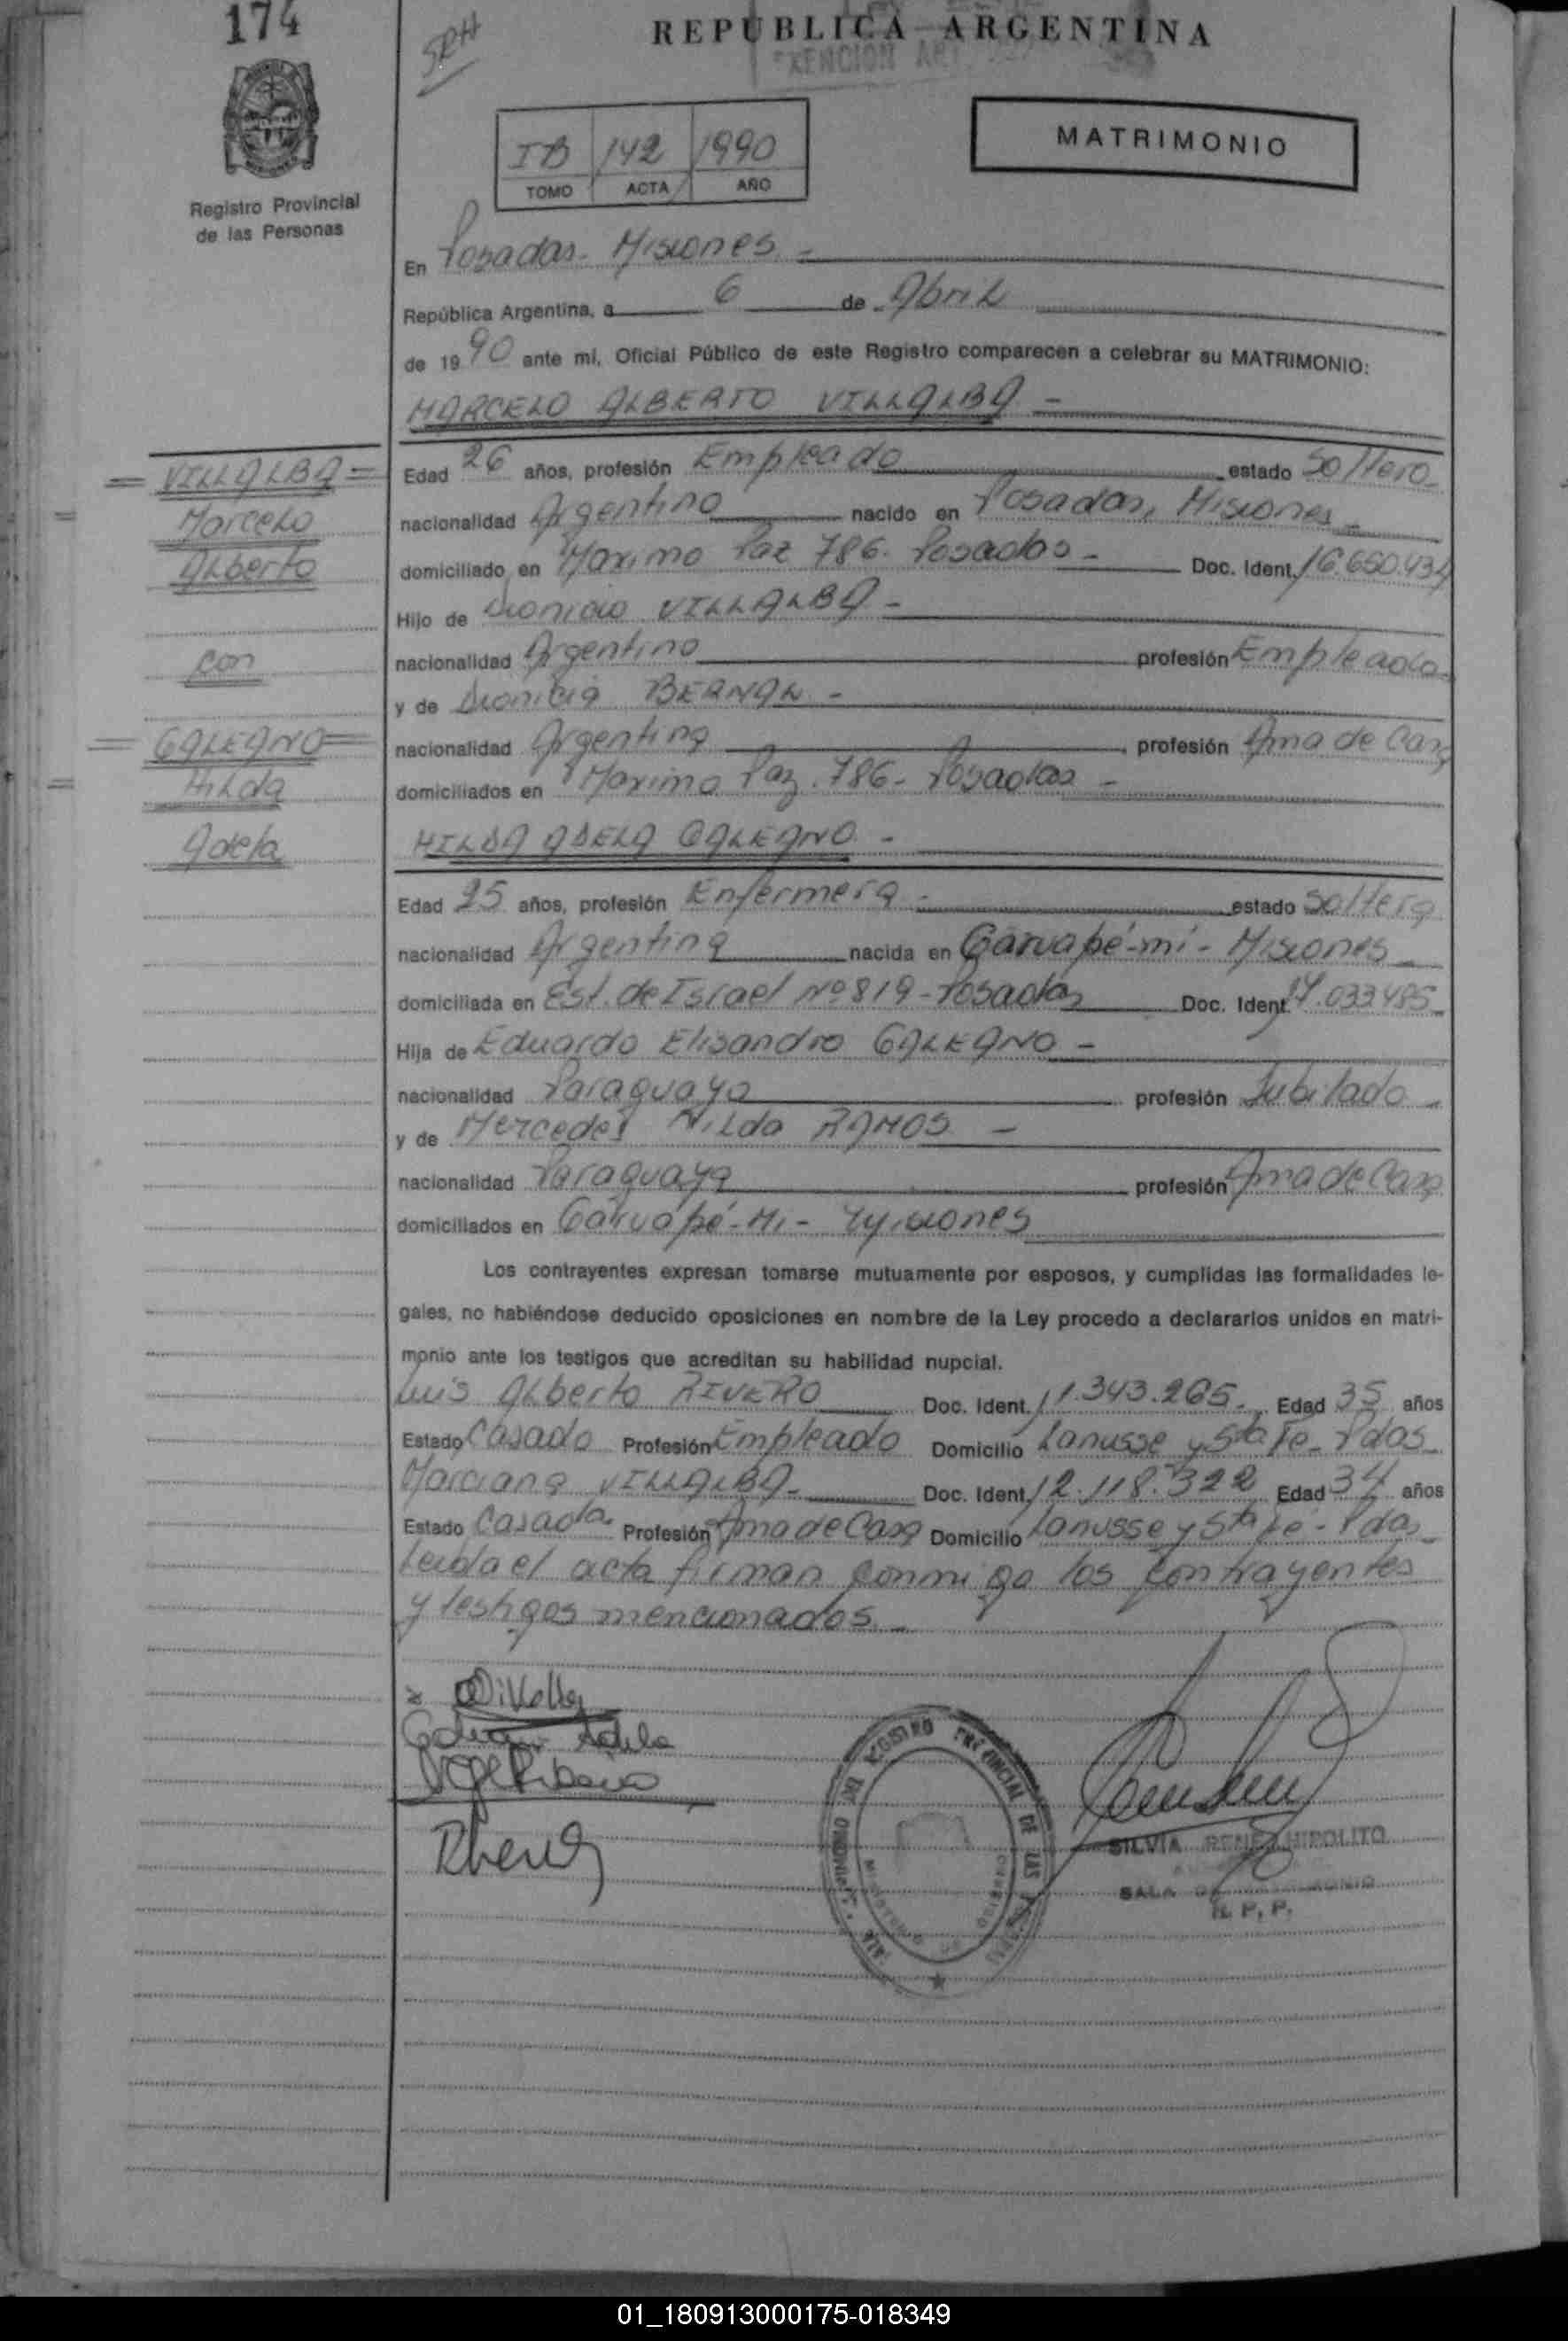 174
SRH
REPUBLICA ARGENTINA
EXENCION
IB 142 1990
TOMO ACTA AÑO
MATRIMONIO
Registro Provincial
de las Personas
En Posadas - Misiones -
República Argentina, a 6 de Abril
de 1990 ante mí, Oficial Público de este Registro comparecen a celebrar su MATRIMONIO:
MARCELO ALBERTO VILLALBA -
= VILLALBA =
Marcelo
Alberto
con
= GALEANO =
Hilda
Adela
Edad 26 años, profesión Empleado estado Soltero -
nacionalidad Argentino nacido en Posadas, Misiones -
domiciliado en Maximo Paz 786. Posadas - Doc. Ident. 16.650.434
Hijo de Dionicio VILLALBA -
nacionalidad Argentino profesión Empleado
y de Dionicia BERNAL -
nacionalidad Argentina profesión Ama de Casa
domiciliados en Maximo Paz. 786 - Posadas -
HILDA ADELA GALEANO -
Edad 25 años, profesión Enfermera - estado Soltera
nacionalidad Argentina nacida en Garuapé-mí - Misiones
domiciliada en Est. de Israel Nº 819 - Posadas Doc. Ident. 17.033.485
Hija de Eduardo Elisandro GALEANO -
nacionalidad Paraguayo profesión Jubilado
y de Mercedes Nilda RAMOS -
nacionalidad Paraguaya profesión Ama de Casa
domiciliados en Garuapé-Mi - Misiones
Los contrayentes expresan tomarse mutuamente por esposos, y cumplidas las formalidades le-
gales, no habiéndose deducido oposiciones en nombre de la Ley procedo a declararlos unidos en matri-
monio ante los testigos que acreditan su habilidad nupcial.
Luis Alberto RIVERO Doc. Ident. 11.343.265. Edad 35 años
Estado Casado Profesión Empleado Domicilio Lanusse y Sta Fe - Pdas
Marciana VILLALBA - Doc. Ident. 12.118.322 Edad 34 años
Estado Casada. Profesión Ama de Casa Domicilio Lanusse y Sta Fé - Pdas
Leida el acta firman conmigo los contrayentes
y testigos mencionados. -
Adela
REGISTRO PROVINCIAL DE LAS
SILVIA RENE HIPOLITO
SALA
R. P. P.
01_180913000175-018349